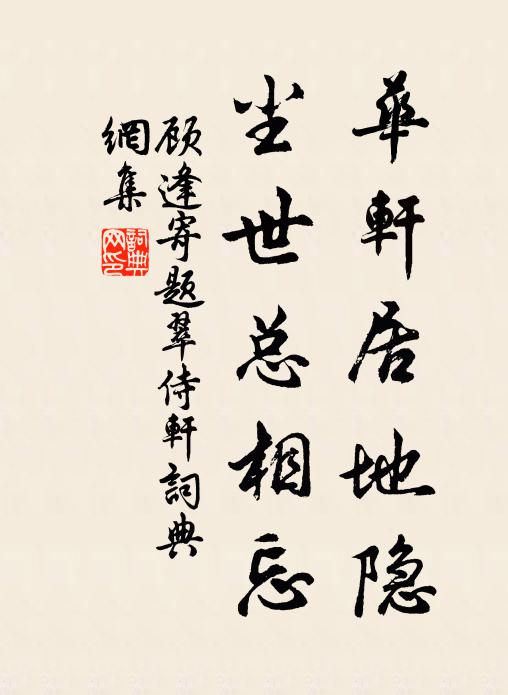 華軒居地隐
尘世总相忘
顾逢寄题翠侍軒詞典
網集
詞典
网印